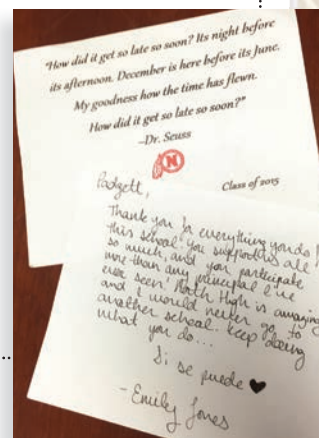 "How did it get so late so soon? Its night before
its afternoon. December is here before its June.
My goodness how the time has flewn.
How did it get so late so soon?"
–Dr. Seuss
N
Class of 2015
Padgett,
Thank you for everything you do!
this school. You support us all
so much, and you participate
more than any principal I've
ever seen! North High is amazing
and I would never go to
another school. Keep doing
what you do...
Si se puede ♥
- Emily Jones